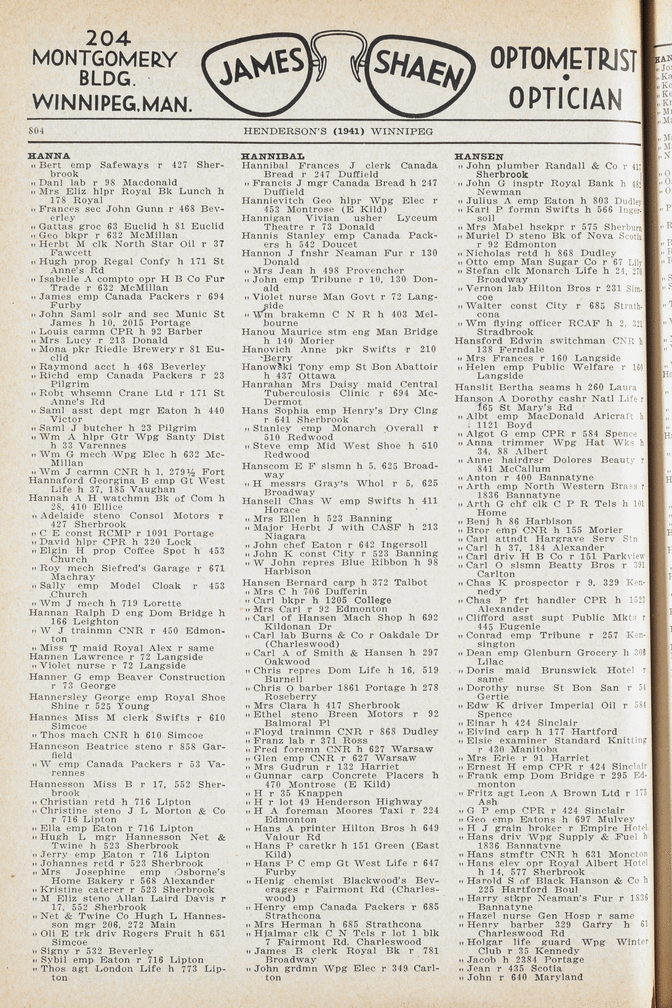 204
MONTGOMERY
BLDG.
WINNIPEG, MAN.
JAMES
SHAEN
OPTOMETRIST
•
OPTICIAN
804
HENDERSON'S (1941) WINNIPEG
HANNA
„ Bert emp Safeways r 427 Sher-
brook
„ Danl lab r 98 Macdonald
„ Mrs Eliz hlpr Royal Bk Lunch h
178 Royal
„ Frances sec John Gunn r 468 Bev-
erley
„ Gattas groc 63 Euclid h 81 Euclid
„ Geo bkpr r 632 McMillan
„ Herbt M clk North Star Oil r 37
Fawcett
„ Hugh prop Regal Confy h 171 St
Anne's Rd
„ Isabelle A compto opr H B Co Fur
Trade r 632 McMillan
„ James emp Canada Packers r 694
Furby
„ John Saml solr and sec Munic St
James h 10, 2015 Portage
„ Louis carmn CPR h 92 Barber
„ Mrs Lucy r 213 Donald
„ Mona pkr Riedle Brewery r 81 Eu-
clid
„ Raymond acct h 468 Beverley
„ Richd emp Canada Packers r 23
Pilgrim
„ Robt whsemn Crane Ltd r 171 St
Anne's Rd
„ Saml asst dept mgr Eaton h 440
Victor
„ Saml J butcher h 23 Pilgrim
„ Wm A hlpr Gtr Wpg Santy Dist
h 33 Varennes
„ Wm G mech Wpg Elec h 632 Mc-
Millan
„ Wm J carmn CNR h 1, 279½ Fort
Hannaford Georgina B emp Gt West
Life h 37, 185 Vaughan
Hannah A H watchmn Bk of Com h
28, 410 Ellice
„ Adelaide steno Consol Motors r
427 Sherbrook
„ C E const RCMP r 1091 Portage
„ David hlpr CPR h 320 Lock
„ Elgin H prop Coffee Spot h 453
Church
„ Roy mech Siefred's Garage r 671
Machray
„ Sally emp Model Cloak r 453
Church
„ Wm J mech h 719 Lorette
Hannan Ralph D eng Dom Bridge h
166 Leighton
„ W J trainmn CNR r 450 Edmon-
ton
„ Miss T maid Royal Alex r same
Hannen Lawrence r 72 Langside
„ Violet nurse r 72 Langside
Hanner G emp Beaver Construction
r 73 George
Hannersley George emp Royal Shoe
Shine r 525 Young
Hannes Miss M clerk Swifts r 610
Simcoe
„ Thos mach CNR h 610 Simcoe
Hanneson Beatrice steno r 858 Gar-
field
„ W emp Canada Packers r 53 Va-
rennes
Hannesson Miss B r 17, 552 Sher-
brook
„ Christian retd h 716 Lipton
„ Christine steno J L Morton & Co
r 716 Lipton
„ Ella emp Eaton r 716 Lipton
„ Hugh L mgr Hannesson Net &
Twine h 523 Sherbrook
„ Jerry emp Eaton r 716 Lipton
„ Johannes retd r 523 Sherbrook
„ Mrs Josephine emp Osborne's
Home Bakery r 568 Alexander
„ Kristine caterer r 523 Sherbrook
„ M Eliz steno Allan Laird Davis r
17, 552 Sherbrook
„ Net & Twine Co Hugh L Hannes-
son mgr 206, 272 Main
„ Oli E trk driv Rogers Fruit h 651
Simcoe
„ Signy r 532 Beverley
„ Sybil emp Eaton r 716 Lipton
„ Thos agt London Life h 773 Lip-
ton
HANNIBAL
Hannibal Frances J clerk Canada
Bread r 247 Duffield
„ Francis J mgr Canada Bread h 247
Duffield
Hannievitch Geo hlpr Wpg Elec r
453 Montrose (E Kild)
Hannigan Vivian usher Lyceum
Theatre r 73 Donald
Hannis Stanley emp Canada Pack-
ers h 542 Doucet
Hannon J fnshr Neaman Fur r 130
Donald
„ Mrs Jean h 498 Provencher
„ John emp Tribune r 10, 130 Don-
ald
„ Violet nurse Man Govt r 72 Lang-
side
„ Wm brakemn C N R h 403 Mel-
bourne
Hanou Maurice stm eng Man Bridge
h 140 Morier
Hanovich Anne pkr Swifts r 210
Berry
Hanowski Tony emp St Bon Abattoir
h 437 Ottawa
Hanrahan Mrs Daisy maid Central
Tuberculosis Clinic r 694 Mc-
Dermot
Hans Sophia emp Henry's Dry Clng
r 641 Sherbrook
„ Stanley emp Monarch Overall r
510 Redwood
„ Steve emp Mid West Shoe h 510
Redwood
Hanscom E F slsmn h 5, 625 Broad-
way
„ H messrs Gray's Whol r 5, 625
Broadway
Hansell Chas W emp Swifts h 411
Horace
„ Mrs Ellen h 523 Banning
„ Major Herbt J with CASF h 213
Niagara
„ John chef Eaton r 642 Ingersoll
„ John K const City r 523 Banning
„ W John repres Blue Ribbon h 98
Harbison
Hansen Bernard carp h 372 Talbot
„ Mrs C h 706 Dufferin
„ Carl bkpr h 1205 College
„ Mrs Carl r 92 Edmonton
„ Carl of Hansen Mach Shop h 692
Kildonan Dr
„ Carl lab Burns & Co r Oakdale Dr
(Charleswood)
„ Carl A of Smith & Hansen h 297
Oakwood
„ Chris repres Dom Life h 16, 519
Burnell
„ Chris O barber 1861 Portage h 278
Roseberry
„ Mrs Clara h 417 Sherbrook
„ Ethel steno Breen Motors r 92
Balmoral Pl
„ Floyd trainmn CNR r 868 Dudley
„ Franz lab r 371 Ross
„ Fred foremn CNR h 627 Warsaw
„ Glen emp CNR r 627 Warsaw
„ Mrs Gudrun r 132 Harriet
„ Gunnar carp Concrete Placers h
470 Montrose (E Kild)
„ H r 35 Knappen
„ H r lot 49 Henderson Highway
„ H A foreman Moores Taxi r 224
Edmonton
„ Hans A printer Hilton Bros h 649
Valour Rd
„ Hans P caretkr h 151 Green (East
Kild)
„ Hans P C emp Gt West Life r 647
Furby
„ Henig chemist Blackwood's Bev-
erages r Fairmont Rd (Charles-
wood)
„ Henry emp Canada Packers r 685
Strathcona
„ Mrs Herman h 685 Strathcona
„ Hjalmar clk C N Tels r lot 1 blk
7 Fairmont Rd. Charleswood
„ James B clerk Royal Bk r 781
Broadway
„ John grdmn Wpg Elec r 349 Carl-
ton
HANSEN
„ John plumber Randall & Co r 417
Sherbrook
„ John G insptr Royal Bank h
Newman
„ Julius A emp Eaton h 803 Dudley
„ Karl P formn Swifts h 566 Inger-
soll
„ Mrs Mabel hsekpr r 575 Sherburn
„ Muriel D steno Bk of Nova Scotia
r 92 Edmonton
„ Nicholas retd h 868 Dudley
„ Otto emp Man Sugar Co r 67 Lily
„ Stefan clk Monarch Life h 24,
Broadway
„ Vernon lab Hilton Bros r 231 Sim-
coe
„ Walter const City r 685 Strath-
cona
„ Wm flying officer RCAF h 2,
Stradbrook
Hansford Edwin switchman CNR h
138 Ferndale
„ Mrs Frances r 160 Langside
„ Helen emp Public Welfare r 160
Langside
Hanslit Bertha seams h 260 Laura
Hanson A Dorothy cashr Natl Life r
165 St Mary's Rd
„ Albt emp MacDonald Aricraft h
1121 Boyd
„ Algot G emp CPR r 584 Spence
„ Anna trimmer Wpg Hat Wks h
34, 88 Albert
„ Anne hairdrsr Dolores Beauty r
841 McCallum
„ Anton r 400 Bannatyne
„ Arth emp North Western Brass r
1836 Bannatyne
„ Arth G chf clk C P R Tels h 101
Home
„ Benj h 86 Harbison
„ Bror emp CNR h 155 Morier
„ Carl attndt Hargrave Serv Stn
„ Carl h 37, 184 Alexander
„ Carl driv H B Co r 151 Parkview
„ Carl O slsmn Beatty Bros r 391
Carlton
„ Chas K prospector r 9, 329 Ken-
nedy
„ Chas P frt handler CPR h 1522
Alexander
„ Clifford asst supt Public Mkts r
445 Eugenie
„ Conrad emp Tribune r 257 Ken-
sington
„ Dean emp Glenburn Grocery h 308
Lilac
„ Doris maid Brunswick Hotel r
same
„ Dorothy nurse St Bon San r 54
Gertie
„ Edw K driver Imperial Oil r 584
Spence
„ Einar h 424 Sinclair
„ Eivind carp h 177 Hartford
„ Elsie examiner Standard Knitting
r 430 Manitoba
„ Mrs Erle r 91 Harriet
„ Ernest H emp CPR r 424 Sinclair
„ Frank emp Dom Bridge r 295 Ed-
monton
„ Fritz agt Leon A Brown Ltd r 175
Ash
„ G P emp CPR r 424 Sinclair
„ Geo emp Eatons h 697 Mulvey
„ H J grain broker r Empire Hotel
„ Hans driv Wpg Supply & Fuel h
1836 Bannatyne
„ Hans stmftr CNR h 631 Moncton
„ Hans elev opr Royal Albert Hotel
h 14, 577 Sherbrook
„ Harold S of Black Hanson & Co h
225 Hartford Boul
„ Harry stkpr Neaman's Fur r 1836
Bannatyne
„ Hazel nurse Gen Hosp r same
„ Henry barber 329 Garry h
Charleswood Rd
„ Holgar life guard Wpg Winter
Club r 35 Kennedy
„ Jacob h 2384 Portage
„ Jean r 435 Scotia
„ John r 640 Maryland